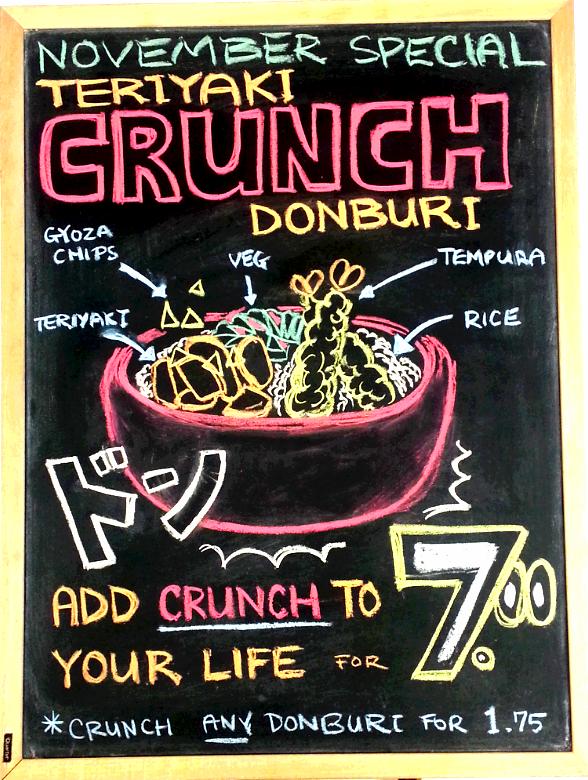 NOVEMBER SPECIAL
TERIYAKI
CRUNCH
DONBURI
GYOZA
CHIPS
VEG
TEMPURA
TERIYAKI
RICE
ドン
ADD CRUNCH TO
YOUR LIFE FOR 7.00
*CRUNCH ANY DONBURI FOR 1.75